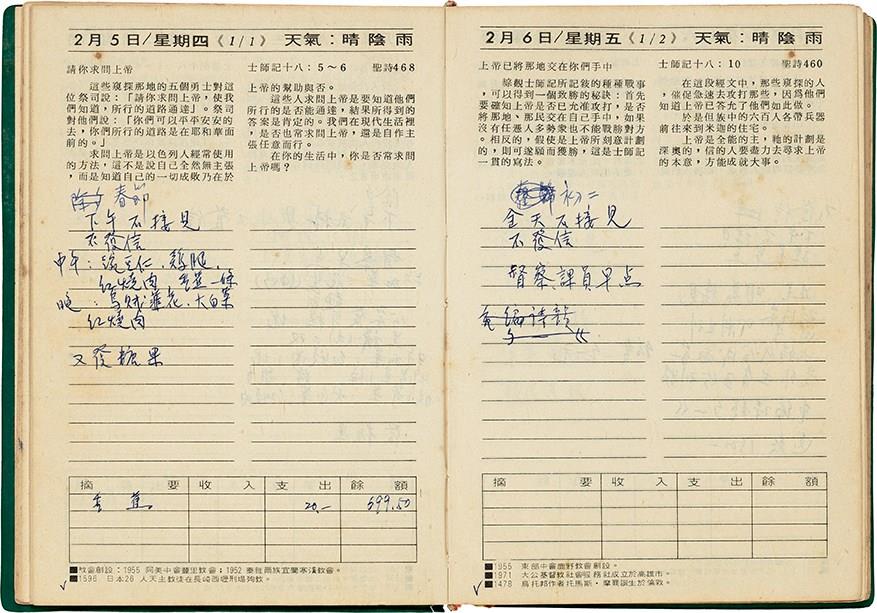 2月5日/星期四《1/1》 天氣:晴陰雨
請你求問上帝 士師記十八:5~6 聖詩468
這些窺探那地的五個勇士對這
位祭司說:「請你求問上帝,使我
們知道,所行的道路通達」。祭司
對他們說:「你們可以平平安安的
去,你們所行的道路是在耶和華面
前的。」
求問上帝是以色列人經常使用
的方法,這不是說自己全然無主張
,而是知道自己的一切成敗乃在於
上帝的幫助與否。
這些人求問上帝是要知道他們
所行的是否能通達,結果所得到的
答案是肯定的。我們在現代生活裡
,是否也常求問上帝,還是自作主
張任意而行。
在你的生活中,你是否常求問
上帝嗎?
春節
下午不接見
不發信
中午:鷄腿,
紅燒肉
晚:烏賊、大白菜
紅燒肉
又發糖果
摘要 收入 支出 餘額
香蕉 20.- 599.50
■教會創設:1955 阿美中會豐里教會;1952 泰雅爾族宜蘭寒溪教會。
■1596 日本26人天主教徒在長崎西坂刑場殉教。
2月6日/星期五《1/2》 天氣:晴陰雨
上帝已將那地交在你們手中 士師記十八:10 聖詩460
綜觀士師記所記後的種種戰事
,可以得到一個致勝的秘訣:首先
要確知上帝是否已允准攻打,是否
將那地、那民交在自己手中,如果
沒有任憑人多勢衆也不能戰勝對方
。相反的,假使是上帝所刻意計劃
的,則可遂願而獲勝,這是士師記
一貫的寫法。
在這段經文中,那些窺探的人
,催促急速去攻打那些,因爲他們
知道上帝已答允了他們如此做。
於是但族中的六百人各帶兵器
前往來到米迦的住宅。
上帝是全能的主,祂的計劃是
深奧的,信的人要盡力去尋求上帝
的本意,方能成就大事。
初二
全天不接見
不發信
督察、課員早点
編詩韻
摘要 收入 支出 餘額
■1955 東部中會鹿野教會創設。
■1971 大公基督教社會服務社成立於高雄市。
■1478 烏托邦作者托馬斯·摩爾誕生於倫敦。